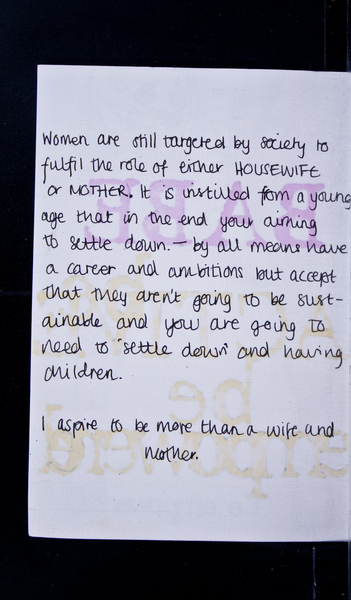 Women are still targeted by society to
fulfil the role of either HOUSEWIFE
or MOTHER. It is instilled from a young
age that in the end your aiming
to settle down. – by all means have
a career and ambitions but accept
that they aren't going to be sust-
ainable and you are going to
need to "settle down" and having
children.
I aspire to be more than a wife and
mother.
BABE
be
empowered